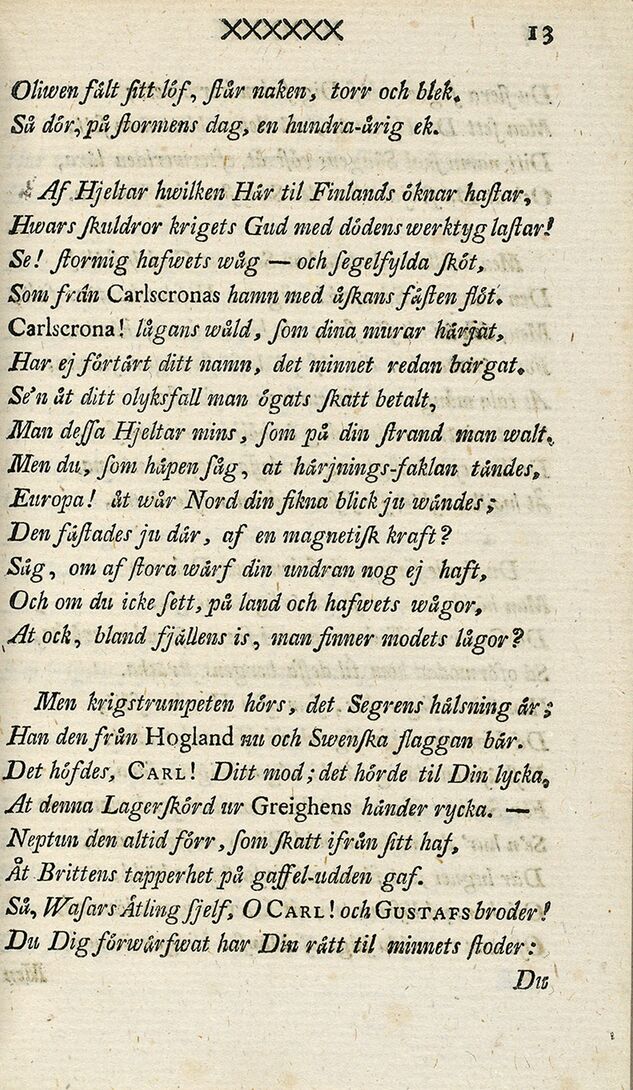 XXXXXX 13
Oliwen fält sitt löf, står naken, torr och blek.
Så dör, på stormens dag, en hundra-årig ek.
Af Hjeltar hwilken Här til Finlands öknar hastar,
Hwars skuldror krigets Gud med dödens werktyg lastar!
Se! stormig hafwets wåg — och segelfylda sköt,
Som från Carlscronas hamn med åskans fästen flöt.
Carlscrona! lågans wåld, som dina murar härjat,
Har ej förtärt ditt namn, det minnet redan bärgat.
Se'n åt ditt olyksfall man ögats skatt betalt,
Man dessa Hjeltar mins, som på din strand man walt.
Men du, som häpen såg, at härjnings-faklan tändes,
Europa! åt wår Nord din fikna blick ju wändes;
Den fästades ju där, af en magnetisk kraft?
Säg, om af stora wärf din undran nog ej haft,
Och om du icke sett, på land och hafwets wågor,
At ock, bland fjällens is, man finner modets lågor?
Men krigstrumpeten hörs, det Segrens hälsning är;
Han den från Hogland nu och Swenska flaggan bär.
Det höfdes, CARL! Ditt mod; det hörde til Din lycka,
At denna Lagerskörd ur Greighens händer rycka. —
Neptun den altid förr, som skatt ifrån sitt haf,
Åt Brittens tapperhet på gaffel-udden gaf.
Så, Wasars Ätling sjelf, O CARL! och GUSTAFS broder!
Du Dig förwärfwat har Din rätt til minnets stoder:
Du